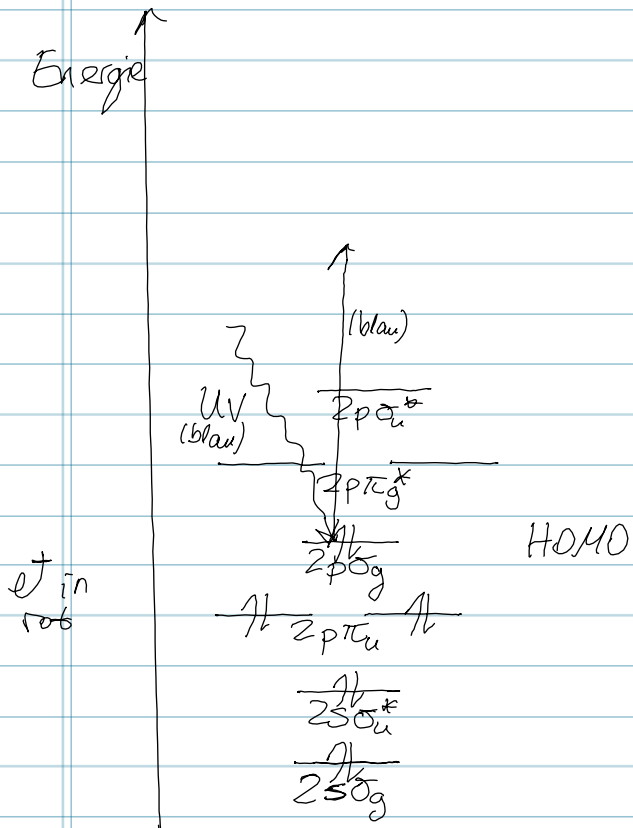 Energie
(blau)
UV
(blau)
2pσu*
2pπg*
HOMO
2pσg
e⁻ in
rot
2pπu
2sσu*
2sσg